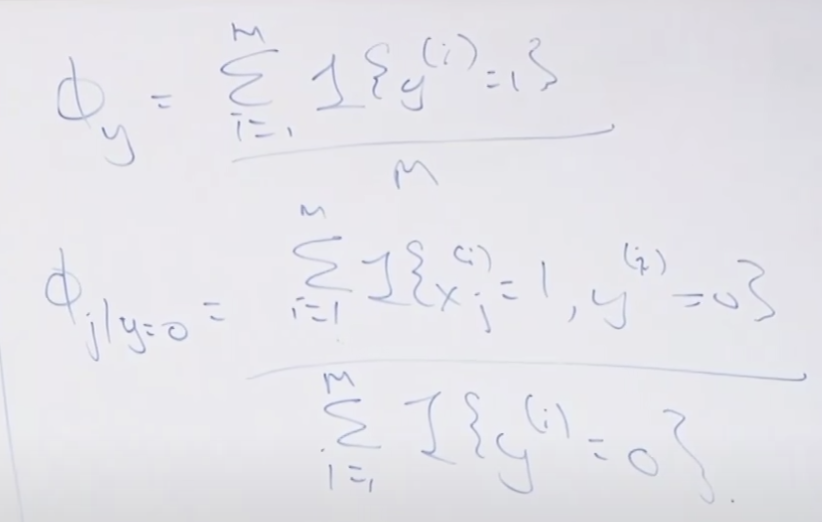 ϕ_y = \frac{\sum_{i=1}^{m} 1\{y^{(i)}=1\}}{m}
ϕ_{j|y=0} = \frac{\sum_{i=1}^{m} 1\{x_j^{(i)}=1, y^{(i)}=0\}}{\sum_{i=1}^{m} 1\{y^{(i)}=0\}}.